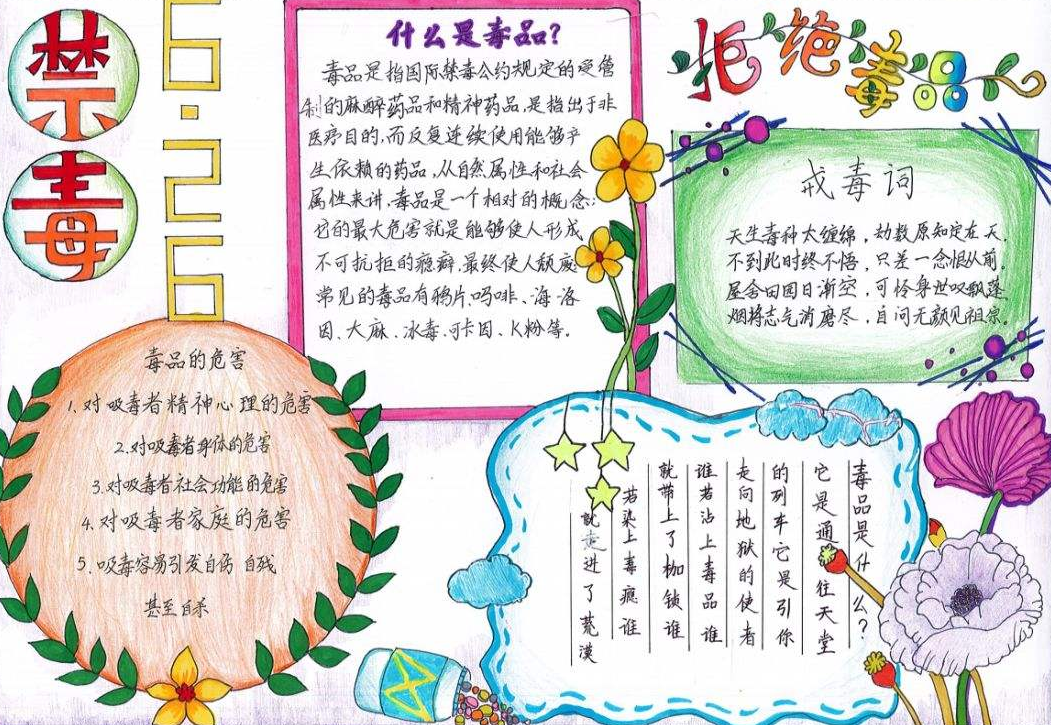 禁毒
6·26
什么是毒品?
毒品是指国际禁毒公约规定的受管
制的麻醉药品和精神药品,是指出于非
医疗目的,而反复连续使用能够产
生依赖的药品,从自然属性和社会
属性来讲,毒品是一个相对的概念;
它的最大危害就是能够使人形成
不可抗拒的瘾癖,最终使人颓废
常见的毒品有鸦片、吗啡、海洛
因、大麻、冰毒、可卡因、K粉等。
拒绝毒品
戒毒词
天生毒种太缠绵,劫数原知定在天。
不到此时终不悟,只差一念恨从前。
屋舍田园日渐空,可怜身世叹飘蓬
烟将志气消磨尽,自问无颜见祖宗。
毒品的危害
1、对吸毒者精神心理的危害
2、对吸毒者身体的危害
3、对吸毒者社会功能的危害
4、对吸毒者家庭的危害
5、吸毒容易引发自伤 自残
甚至自杀
毒品是什么?
它是通往天堂
的列车它是引你
走向地狱的使者
谁若沾上毒品谁
就带上了枷锁谁
若染上毒瘾谁
就走进了荒漠